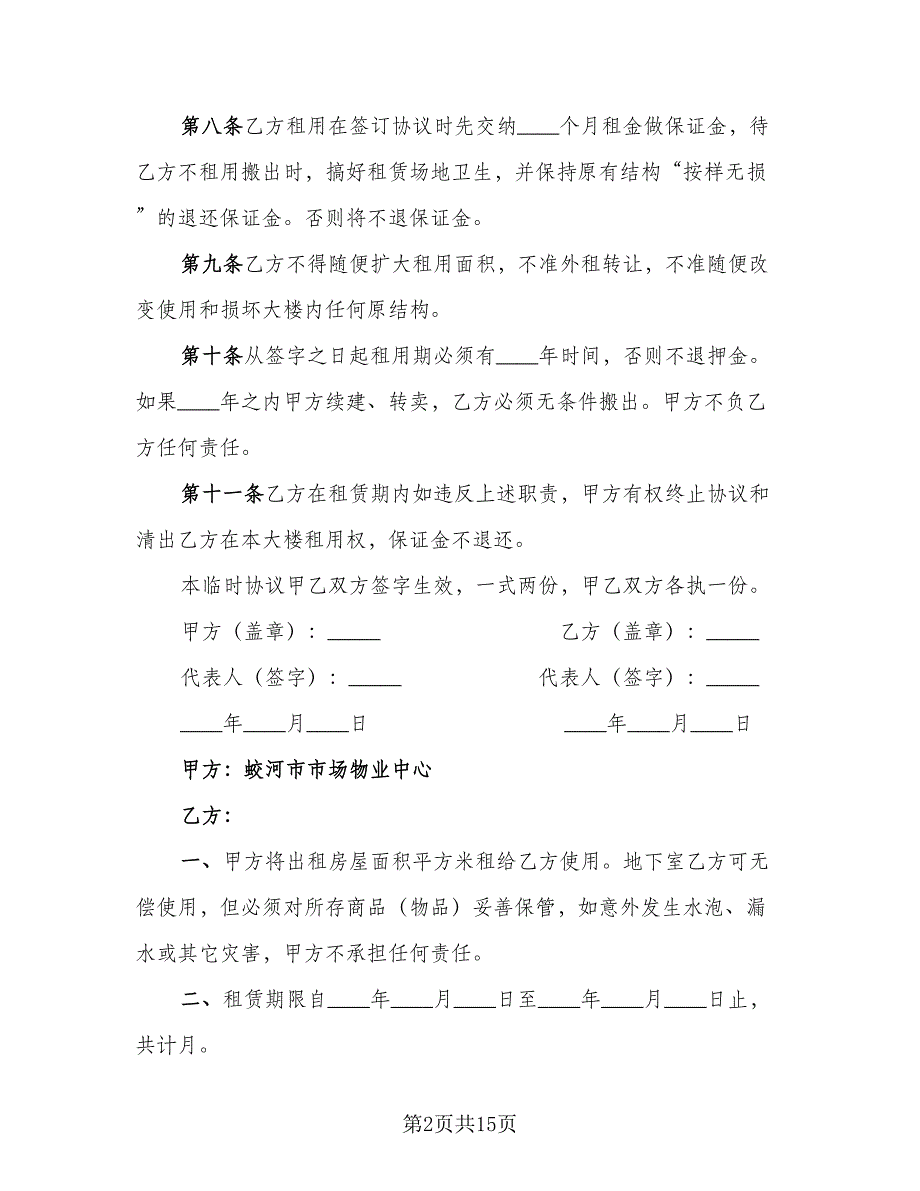 第八条乙方租用在签订协议时先交纳____个月租金做保证金，待
乙方不租用搬出时，搞好租赁场地卫生，并保持原有结构“按样无损
”的退还保证金。否则将不退保证金。
第九条乙方不得随便扩大租用面积，不准外租转让，不准随便改
变使用和损坏大楼内任何原结构。
第十条从签字之日起租用期必须有____年时间，否则不退押金。
如果____年之内甲方续建、转卖，乙方必须无条件搬出。甲方不负乙
方任何责任。
第十一条乙方在租赁期内如违反上述职责，甲方有权终止协议和
清出乙方在本大楼租用权，保证金不退还。
本临时协议甲乙双方签字生效，一式两份，甲乙双方各执一份。
甲方（盖章）：_____ 乙方（盖章）：_____
代表人（签字）：_____ 代表人（签字）：_____
____年____月____日 ____年____月____日
甲方：蛟河市市场物业中心
乙方：
一、甲方将出租房屋面积平方米租给乙方使用。地下室乙方可无
偿使用，但必须对所存商品（物品）妥善保管，如意外发生水泡、漏
水或其它灾害，甲方不承担任何责任。
二、租赁期限自____年____月____日至____年____月____日止，
共计月。
第2页共15页